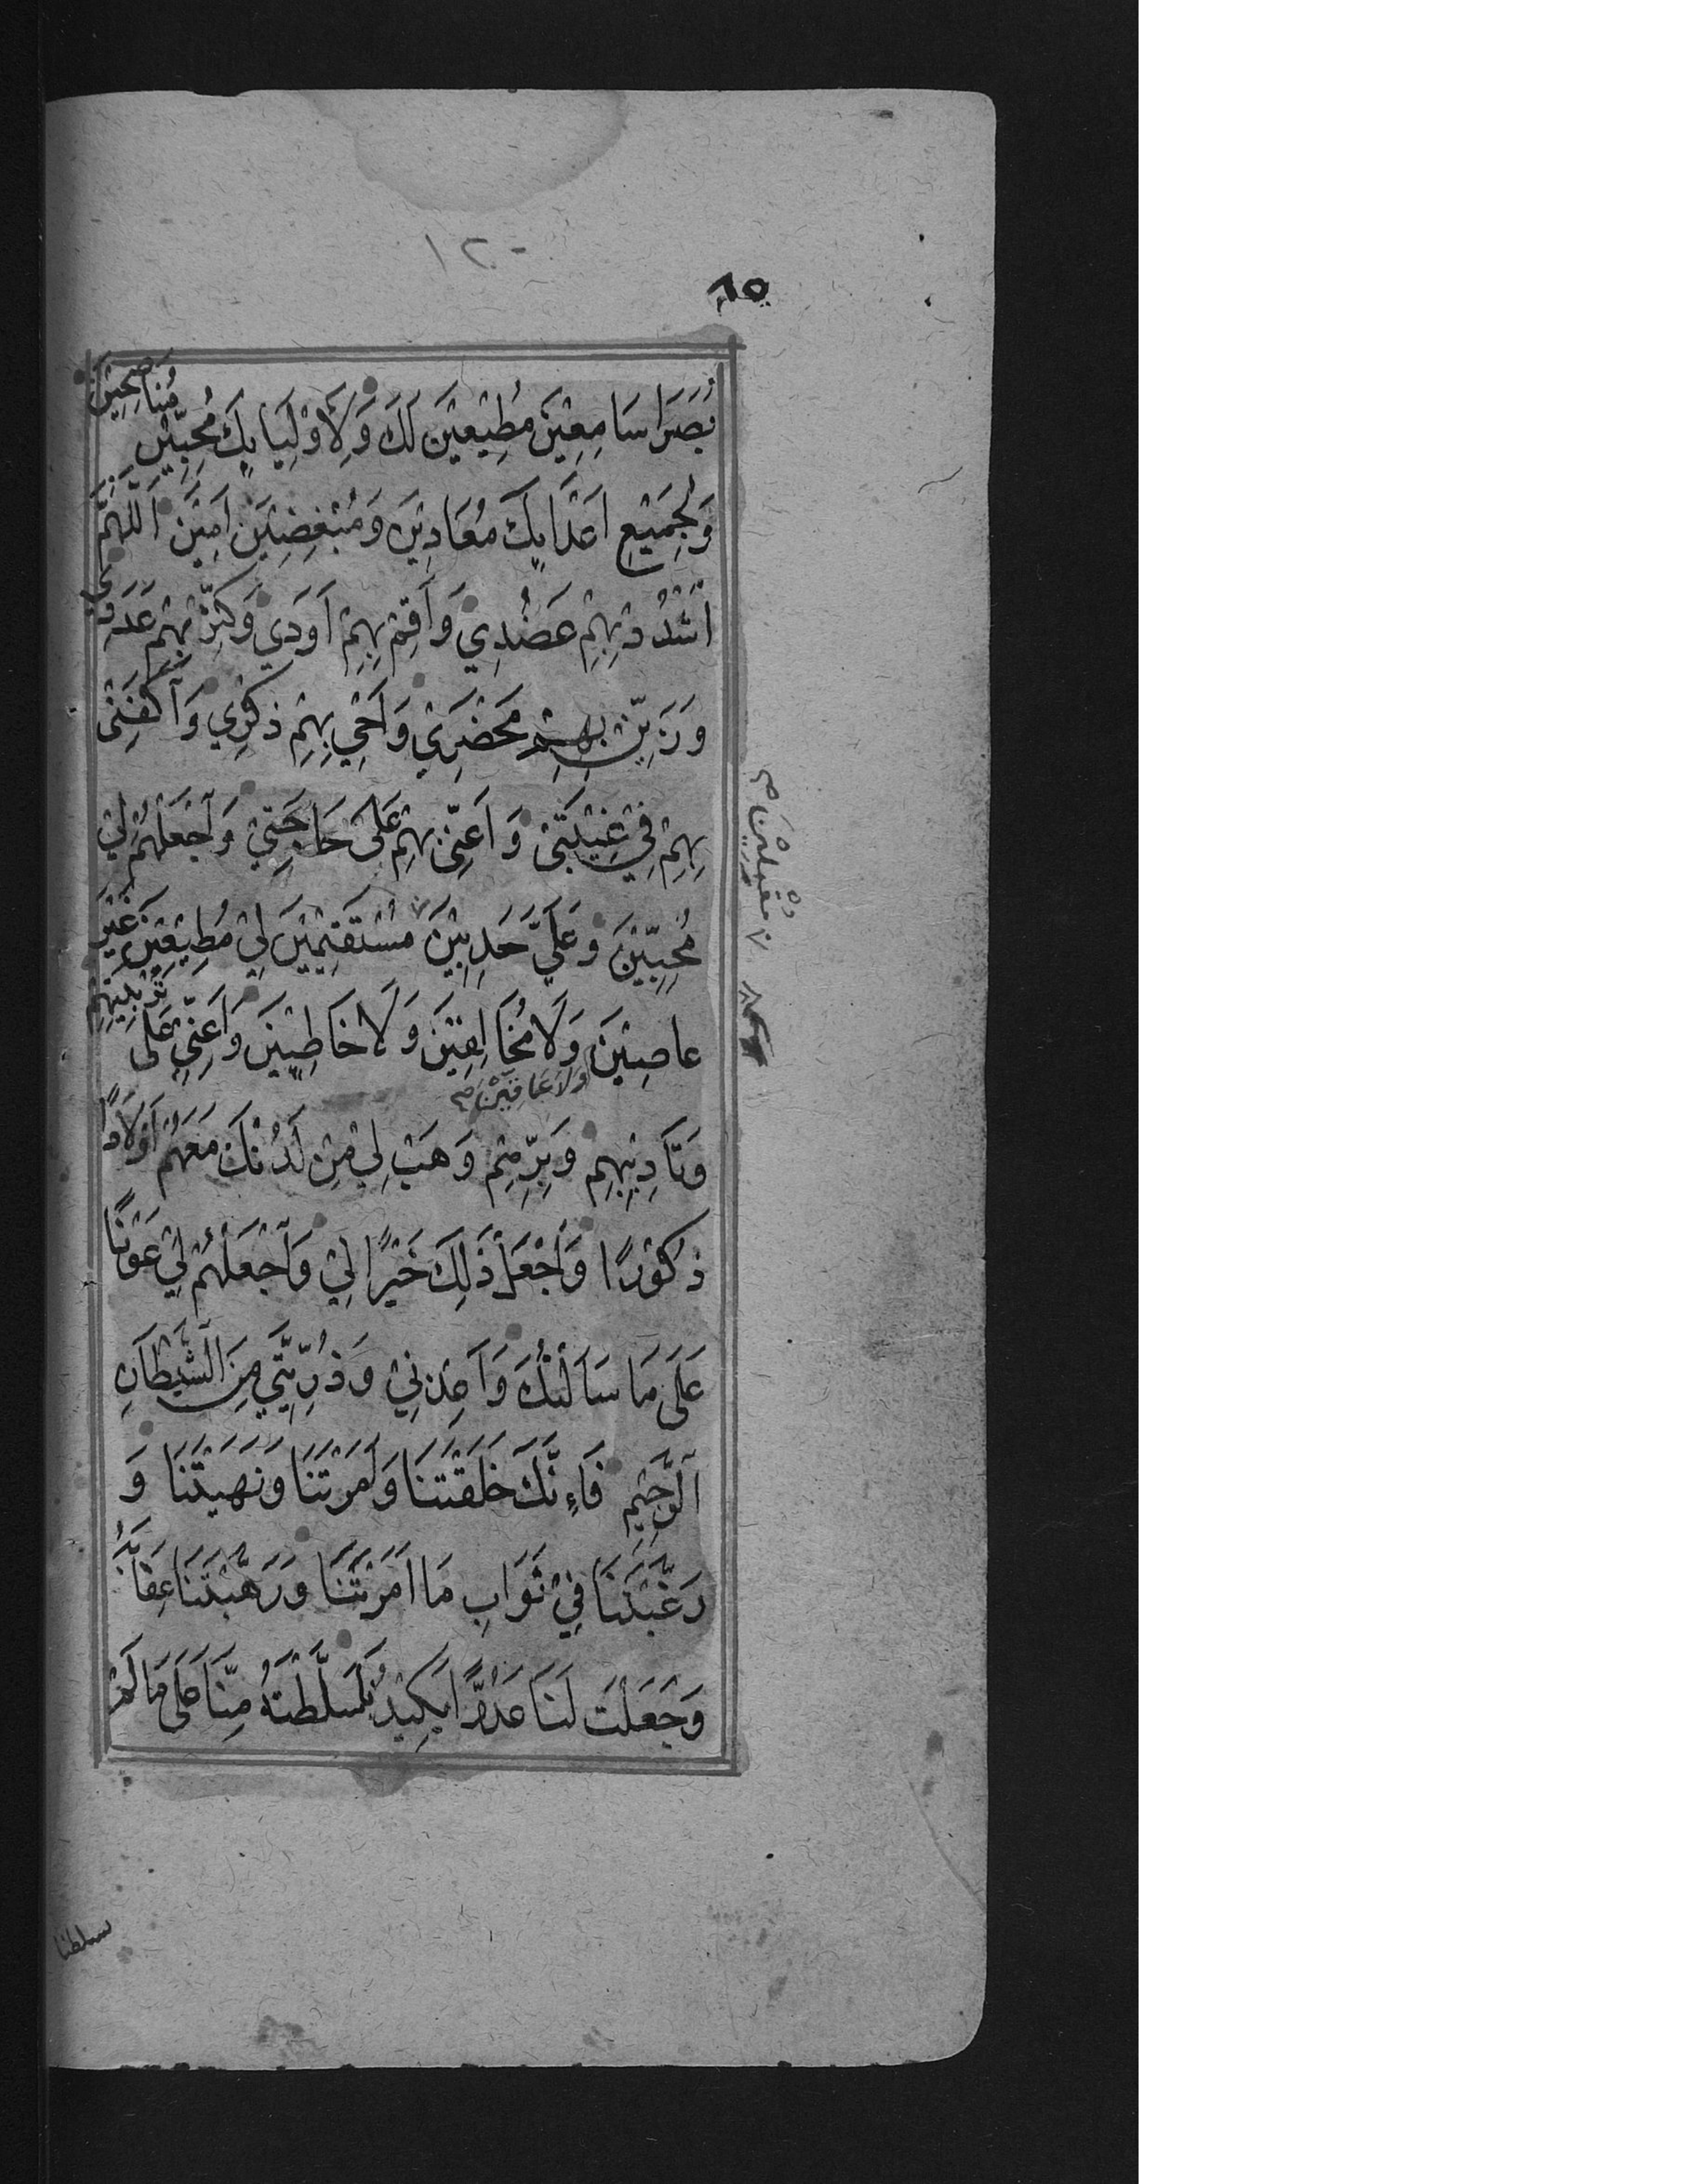 ١٢٠
٦٥
بُصَرَاسَامِعِيْنَ مُطِيْعِيْنَ لَكَ وَلِأَوْلِيَايِٕكَ مُحِبِّيْنَ مُنَاصِحِيْنَ
وَلِجَمِيْعِ اَعْدَايِٕكَ مُعَادِيْنَ وَمُبْغِضِيْنَ اٰمِيْنَ اَللّٰهُمَّ
اشْدُدْ بِهِمْ عَضُدِي وَاَقِمْ بِهِمْ اَوَدِي وَكَثِّرْ بِهِمْ عَدَدِي
وَزَيِّنْ بِهِمْ مَحْضَرِيْ وَاَحْيِ بِهِمْ ذِكْرِي وَاكْفِنِيْ
بِهِمْ فِيْ غَيْبَتِيْ وَاَعِنِّيْ بِهِمْ عَلَى حَاجَتِيْ وَاجْعَلْهُمْ لِيْ
مُحِبِّيْنَ وَعَلَيَّ حَدِبِيْنَ مُسْتَقِيْمِيْنَ لِيْ مُطِيْعِيْنَ غَيْرَ
مُقْبِلِيْنَ
عَاصِيْنَ وَلَا مُخَالِفِيْنَ وَلَا خَاطِئِيْنَ وَاَعِنِّيْ عَلَى تَرْبِيَتِهِمْ
وَلَا عَاقِّيْنَ
وَتَأْدِيْبِهِمْ وَبِرِّهِمْ وَهَبْ لِيْ مِنْ لَدُنْكَ مَعَهُمْ اَوْلَادًا
ذُكُوْرًا وَاجْعَلْ ذٰلِكَ خَيْرًا لِيْ وَاجْعَلْهُمْ لِيْ عَوْنًا
عَلَى مَا سَاَلْتُكَ وَاَعِذْنِيْ وَذُرِّيَّتِيْ مِنَ الشَّيْطَانِ
الرَّجِيْمِ فَاِنَّكَ خَلَقْتَنَا وَاَمَرْتَنَا وَنَهَيْتَنَا وَ
رَغَّبْتَنَا فِيْ ثَوَابِ مَا اَمَرْتَنَا وَرَهَّبْتَنَا عِقَابَهُ
وَجَعَلْتَ لَنَا عَدُوًّا يَكِيْدُنَا سَلَّطْتَهُ مِنَّا عَلَى مَا لَمْ
سلطنا